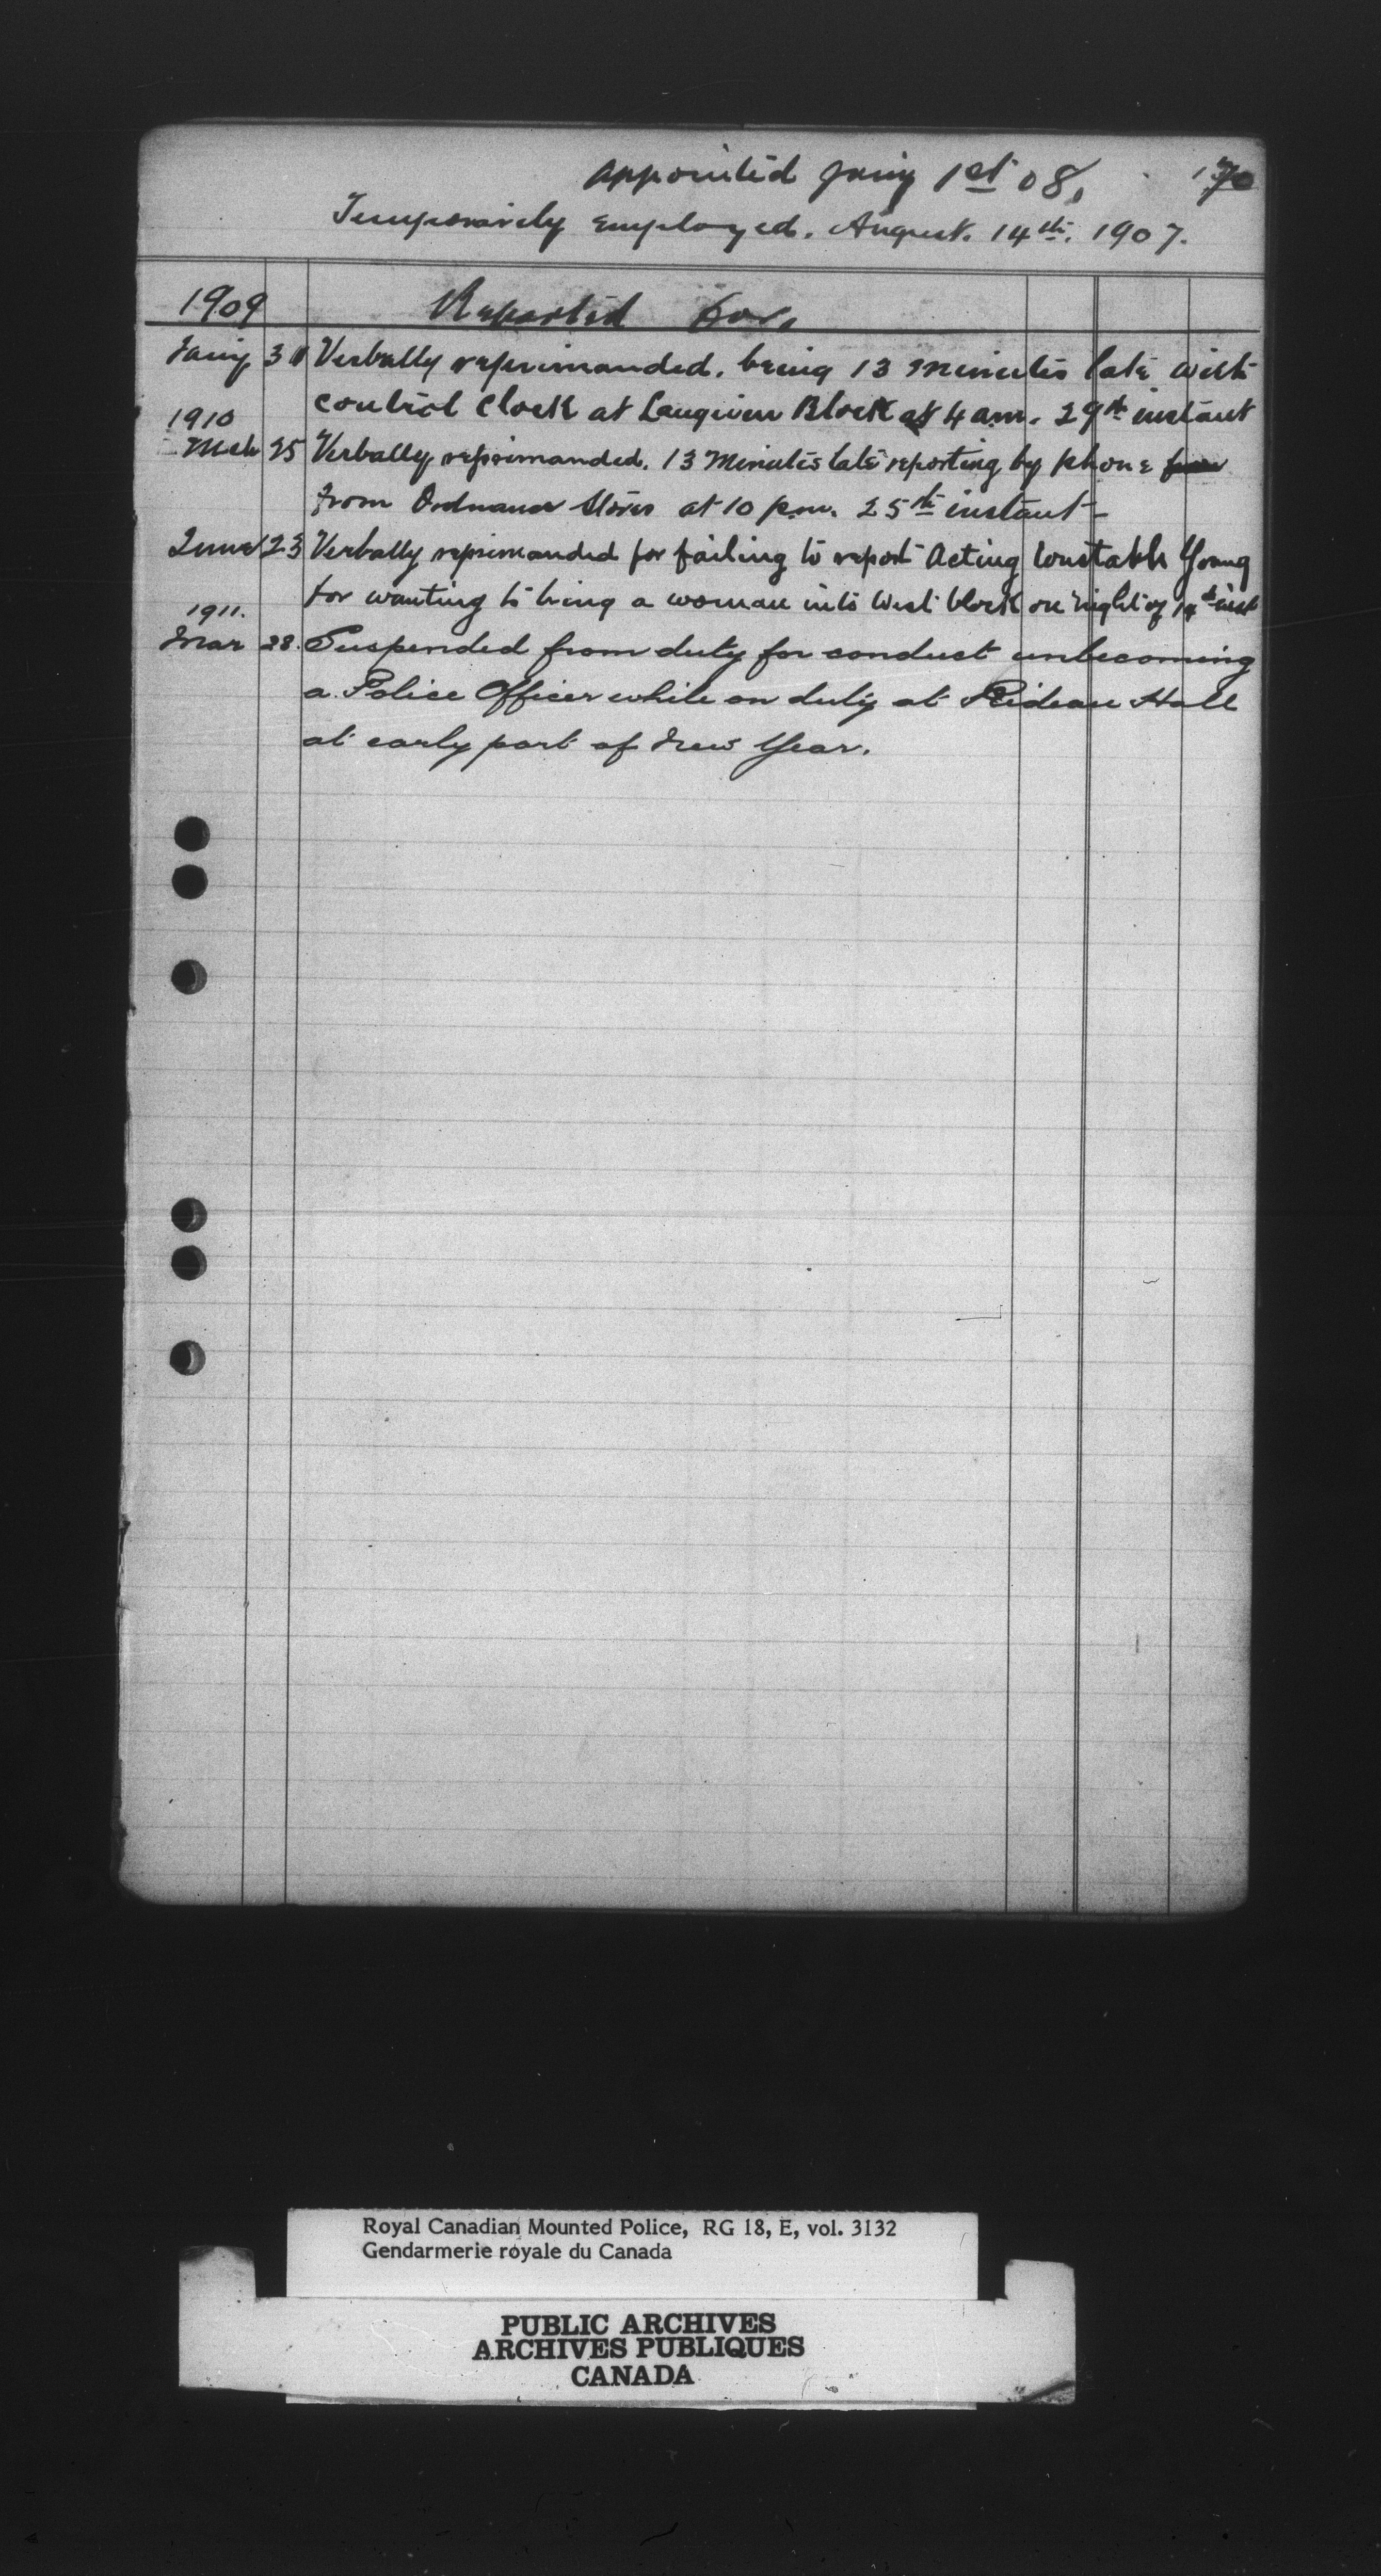 appointed Jany 1st 08. 170
Temporarily Employed. August. 14th. 1907.
1909 Reported for,
Jany 31 Verbally reprimanded. being 13 Minutes late with
control Clock at Langevin Block at 4 a.m. 29th instant
1910
Mch 25 Verbally reprimanded. 13 Minutes late reporting by phone
from Ordnance Stores at 10 p.m. 25th instant
June 23 Verbally reprimanded for failing to report Acting Constable Young
for wanting to bring a woman into West block on night of inst
1911.
Mar 28. Suspended from duty for conduct unbecoming
a Police Officer while on duty at Rideau Hall
at early part of New Year.
Royal Canadian Mounted Police, RG 18, E, vol. 3132
Gendarmerie royale du Canada
PUBLIC ARCHIVES
ARCHIVES PUBLIQUES
CANADA